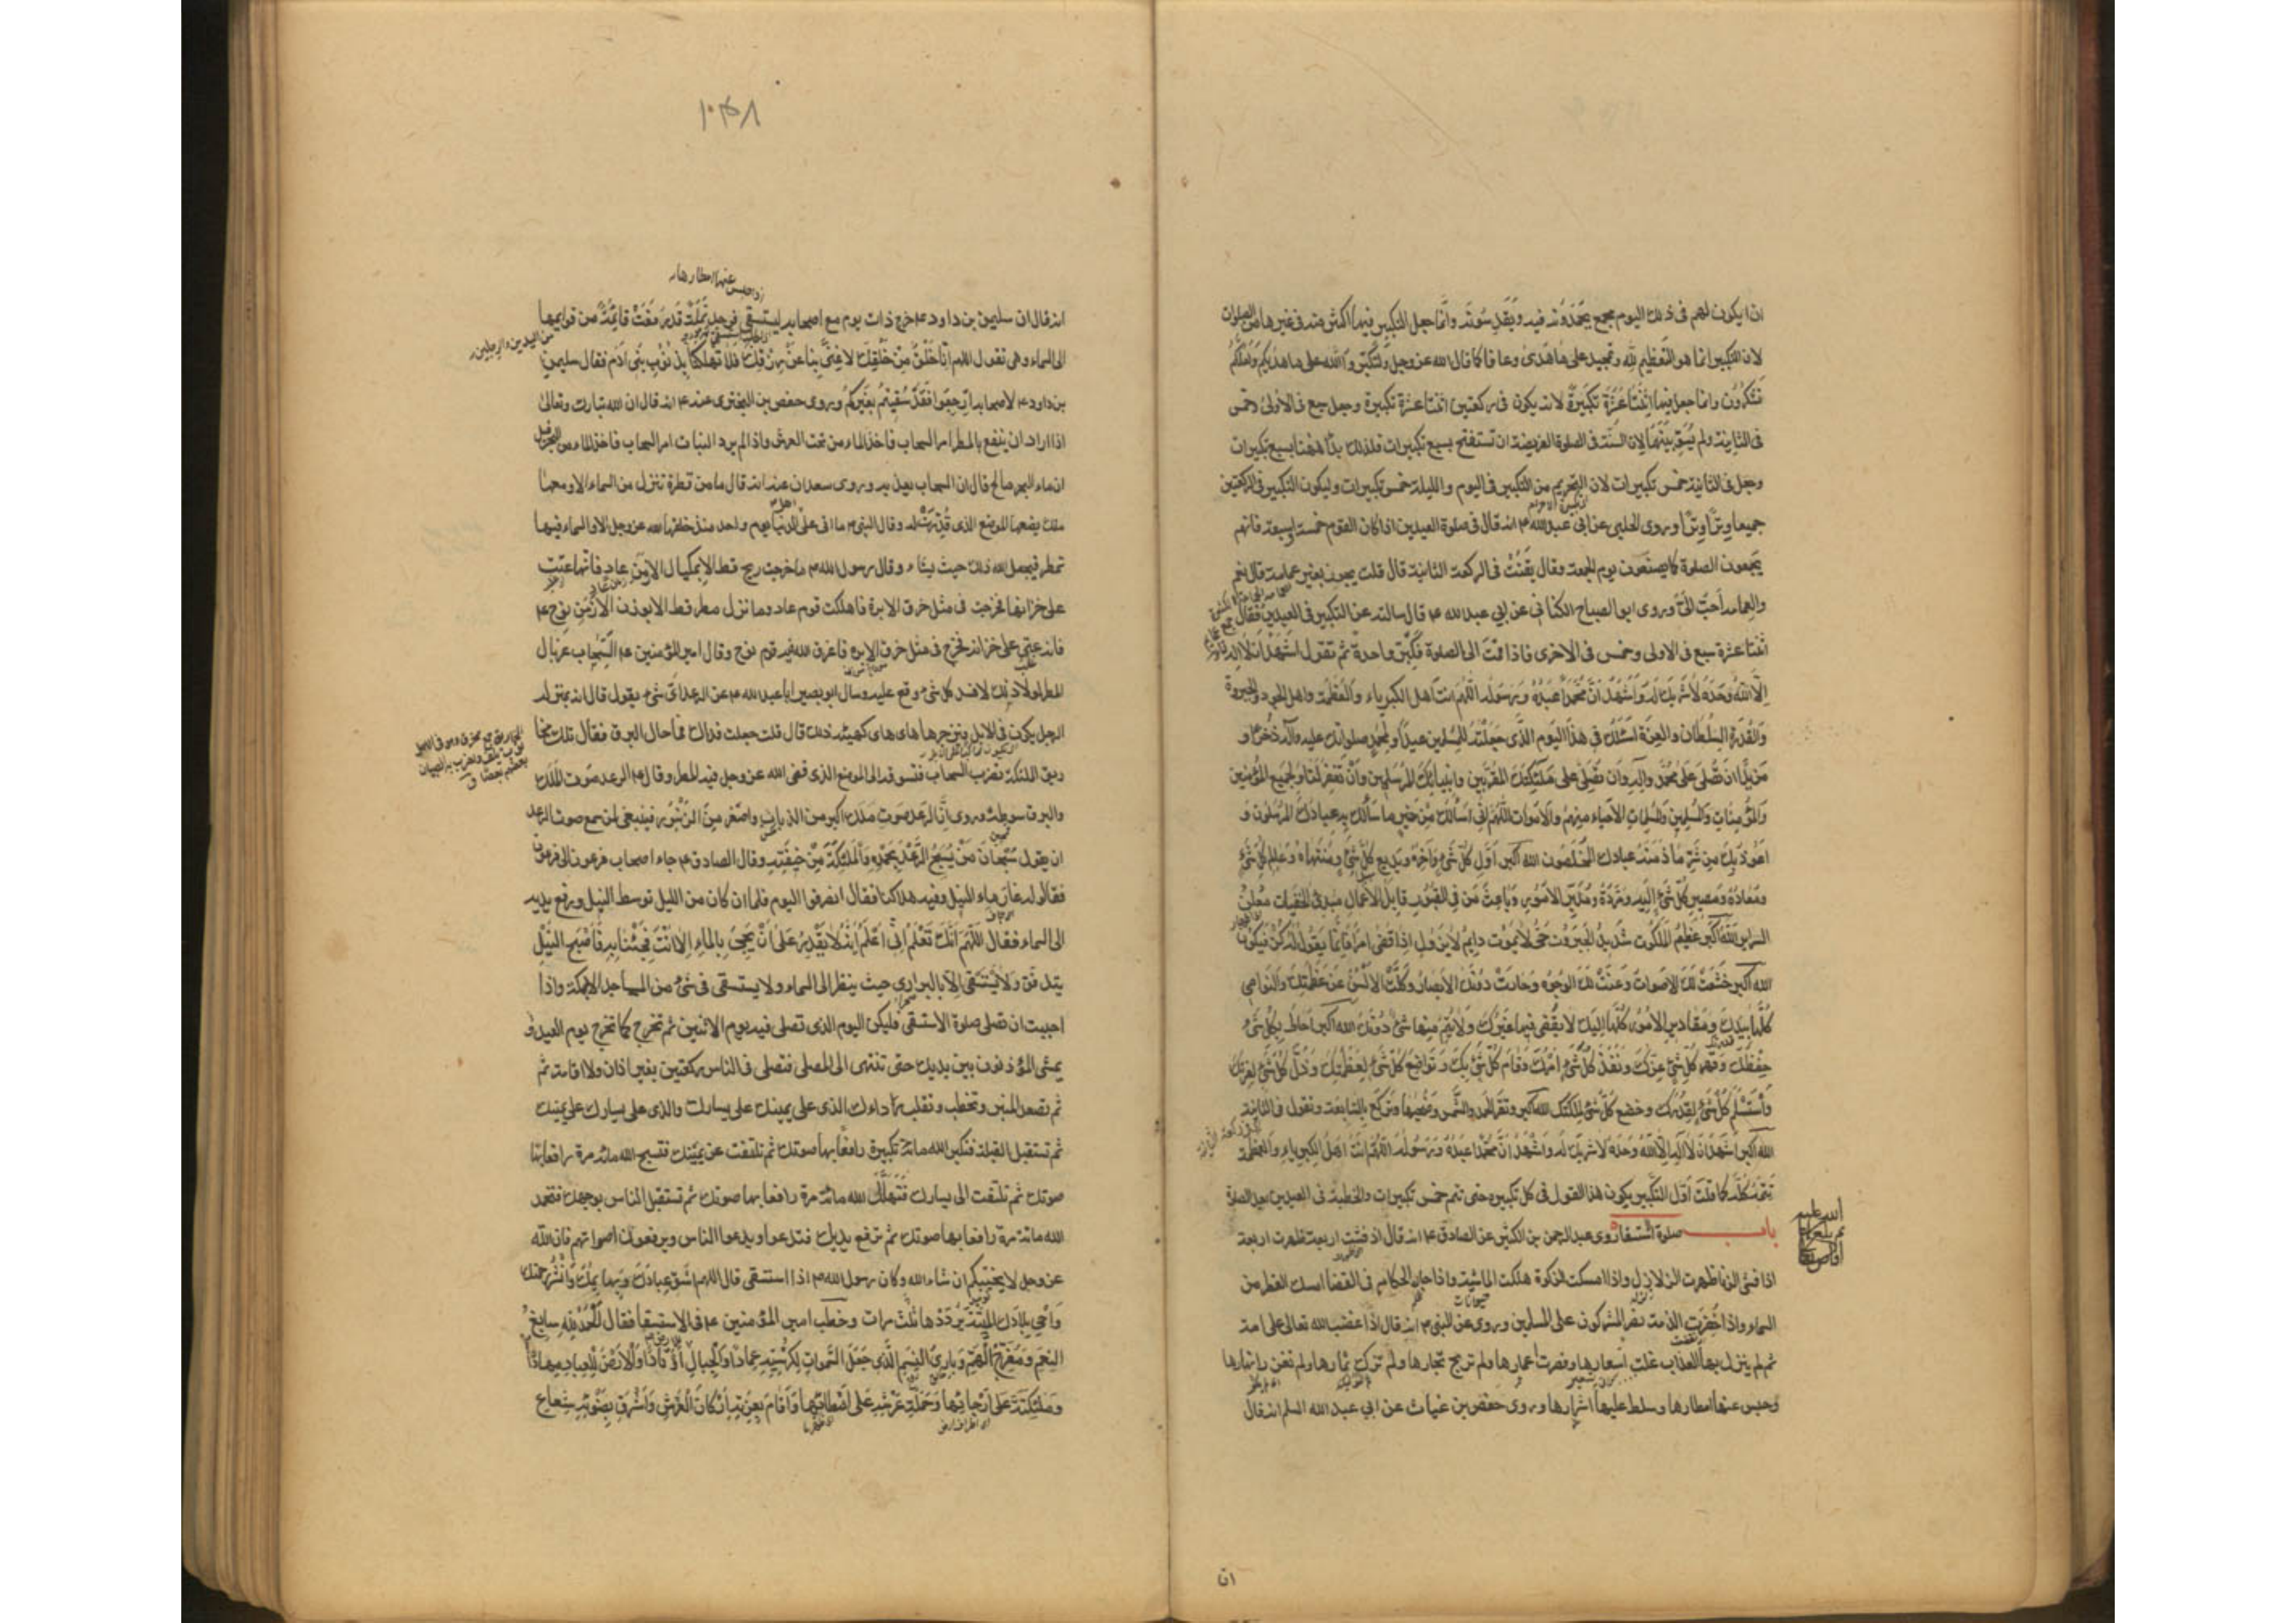 ان يكون لهم فى ذلك اليوم مجمع يحمدونه فيه ويقدسونه وانما جعل التكبير فيها اكثر منه فى غيرها من الصلوات
لان التكبير انما هو التعظيم لله وتمجيد على ما هدى وعافا كما قال الله عز وجل ولتكبروا الله على ما هديكم ولعلكم
تشكرون وانما جعل فيها اثنتا عشرة تكبيرة لانه يكون فى ركعتين اثنتا عشرة تكبيرة وجعل سبع فى الاولى وخمس
فى الثانية ولم يسو بينهما لان السنة فى الصلوة الفريضة ان تستفتح بسبع تكبيرات فلذلك بدأ ههنا بسبع تكبيرات
وجعل فى الثانية خمس تكبيرات لان التحريم من التكبير فى اليوم والليلة خمس تكبيرات وليكون التكبير فى الركعتين
جميعا وترا وترا وروى الحلبى عن ابى عبد الله ع انه قال فى صلوة العيدين اذا كان القوم خمسة او سبعة فانهم
يجمعون الصلوة كما يصنعون يوم الجمعة وقال يقنت فى الركعة الثانية قال قلت يجوز بغير عمامة قال نعم
والعمامة احب الى وروى ابو الصباح الكنانى عن ابى عبد الله ع قال سالته عن التكبير فى العيدين فقال
اثنتا عشرة سبع فى الاولى وخمس فى الاخرى فاذا قمت الى الصلوة فكبر واحدة ثم تقول اشهد ان لا اله
الا الله وحده لا شريك له واشهد ان محمدا عبده ورسوله اللهم انت اهل الكبرياء والعظمة واهل الجود والجبروة
والقدرة السلطان والعزة اسئلك فى هذا اليوم الذى جعلته للمسلمين عيدا ولمحمد صلواتك عليه وآله ذخرا و
مزيدا ان تصلى على محمد وآله وان تصلى على ملئكتك المقربين وانبيائك المرسلين وان تغفر لنا ولجميع المؤمنين
والمؤمنات والمسلمين والمسلمات الاحياء منهم والاموات اللهم انى اسالك من خير ما سألك به عبادك المرسلون و
اعوذ بك من شر ما عاذ منه عبادك المخلصون الله اكبر اول كل شئ وآخره وبديع كل شئ ومنتهاه وعالم كل شئ
ومعاده ومصير كل شئ اليه ومرده ومدبر الامور وباعث من فى القبور قابل الاعمال مبدئ الخفيات معلن
السراير الله اكبر عظيم الملكوت شديد الجبروت حى لا يموت دايم لا يزول اذا قضى امرا فانما يقول له كن فيكون
الله اكبر خشعت لك الاصوات وعنت لك الوجوه وحارت دونك الابصار وكلت الالسن عن عظمتك والنواصى
كلها بيدك ومقادير الامور كلها اليك لا يقضى فيها غيرك ولا يتم منها شئ دونك الله اكبر احاط بكل شئ
حفظك وقهر كل شئ عزك ونفذ كل شئ امرك وقام كل شئ بك وتواضع كل شئ لعظمتك وذل كل شئ لعزتك
واستسلم كل شئ لقدرتك وخضع كل شئ لملكتك الله اكبر وتقرء الحمد والشمس وضحيها وتركع بالسابعة وتقول فى الثانية
الله اكبر اشهد ان لا اله الا الله وحده لا شريك له واشهد ان محمدا عبده ورسوله اللهم انت اهل الكبرياء والعظمة
تتمه كله كما قلت اول التكبير يكون هذا القول فى كل تكبيرة حتى تتم خمس تكبيرات والخطبة فى العيدين بعد الصلوة
باب صلوة الاستسقا روى عبد الرحمن بن الكثير عن الصادق ع انه قال اذا فشت اربعة ظهرت اربعة
اذا فشى الزنا ظهرت الزلازل واذا امسكت الزكوة هلكت الماشية واذا جار الحكام فى القضا امسك القطر من
السماء واذا اخفرت الذمة نصر المشركون على المسلمين وروى عن النبى ص انه قال اذا غضب الله تعالى على امة
ثم لم ينزل بها العذاب غلت اسعارها وقصرت اعمارها ولم تربح تجارها ولم تزك ثمارها ولم تغزر انهارها
وحبس عنها امطارها وسلط عليها اشرارها وروى حفص بن غياث عن ابى عبد الله السلم انه قال
ان
١٠٤٨
انه قال ان سليمن بن داود ع خرج ذات يوم مع اصحابه ليستسقى فوجد نملة قد رفعت قائمة من قوايمها
الى السماء وهى تقول اللهم انا خلق من خلقك لا غنى بنا عن رزقك فلا تهلكنا بذنوب بنى آدم فقال سليمن
بن داود ع لاصحابه ارجعوا فقد سقيتم بغيركم وروى حفص بن البخترى عنه ع انه قال ان الله تبارك وتعالى
اذا اراد ان ينفع بالمطر امر السحاب فاخذ الماء من تحت العرش واذا لم يرد النبات امر السحاب فاخذ الماء من البحر قيل
ان ماء البحر مالح قال ان السحاب يعذبه وروى سعدان عنه انه قال ما من قطرة تنزل من السماء الا ومعها
ملك يضعها الموضع الذى قدرت له وقال النبى ص ما اتى على اهل الدنيا يوم واحد منذ خلقها الله عز وجل الا والسماء فيها
تمطر فيجعل الله ذلك حيث يشاء وقال رسول الله ص ما خرجت ريح قط الا بمكيال الا زمن عاد فانها عتت
على خزانها فخرجت فى مثل خرق الابرة فاهلكت قوم عاد وما نزل مطر قط الا بوزن الا زمن نوح ع
فانه عتى على خزانه فخرج فى مثل خرق الابرة فاغرق الله فيه قوم نوح وقال امير المؤمنين ع السحاب غربال
المطر لولا ذلك لافسد كل شئ وقع عليه وسال ابو بصير ابا عبد الله ع عن الرعد اى شئ يقول قال انه بمنزلة
الرجل يكون فى الابل فيزجرها هاى هاى كهيئة ذلك قال قلت جعلت فداك فما حال البرق فقال تلك مخا
ريق الملئكة تضرب السحاب فتسوقه الى الموضع الذى قضى الله عز وجل فيه المطر وقال ع الرعد صوت الملك
والبرق سوطه وروى ان الرعد صوت ملك اكبر من الذباب واصغر من الزنبور فينبغى لمن سمع صوت الرعد
ان يقول سبحان من يسبح الرعد بحمده والملئكة من خيفته وقال الصادق ع جاء اصحاب فرعون الى فرعون
فقالوا له غار ماء النيل وفيه هلاكنا فقال انصرفوا اليوم فلما ان كان من الليل توسط النيل ورفع يديه
الى السماء فقال اللهم انك تعلم انى اعلم انه لا يقدر على ان يجئ بالماء الا انت فجئنا به فاصبح النيل
يتدفق ولا يستسقى الا بالبرارى حيث ينظر الى السماء ولا يستسقى فى شئ من المساجد الا بمكة واذا
احببت ان تصلى صلوة الاستسقى فليكن اليوم الذى تصلى فيه يوم الاثنين ثم تخرج كما تخرج يوم العيد و
يمشى المؤذنون بين يديك حتى تنتهى الى المصلى فتصلى فى الناس ركعتين بغير اذان ولا اقامة ثم
ثم تصعد المنبر وتخطب وتقلب رداءك الذى على يمينك على يسارك والذى على يسارك على يمينك
ثم تستقبل القبلة فتكبر الله مائة تكبيرة رافعا بها صوتك ثم تلتفت عن يمينك فتسبح الله مائة مرة رافعا بها
صوتك ثم تلتفت الى يسارك فتهلل الله مائة مرة رافعا بها صوتك ثم تستقبل الناس بوجهك فتحمد
الله مائة مرة رافعا بها صوتك ثم ترفع يديك فتدعوا ويدعوا الناس ويرفعون اصواتهم فان الله
عز وجل لا يخيبكم ان شاء الله وكان رسول الله ص اذا استسقى قال اللهم اسق عبادك وبهائمك وانشر رحمتك
واحى بلادك الميتة يرددها ثلث مرات وخطب امير المؤمنين ع فى الاستسقا فقال الحمد لله سابغ
النعم ومفرج الهم وبارئ النسم الذى جعل السموات لكرسيه عمادا والجبال اوتادا والارض للعباد مهادا
وملئكته على ارجائها وحملة عرشه على امطائها واقام بعزته اركان العرش واشرق بضوئه شعاع